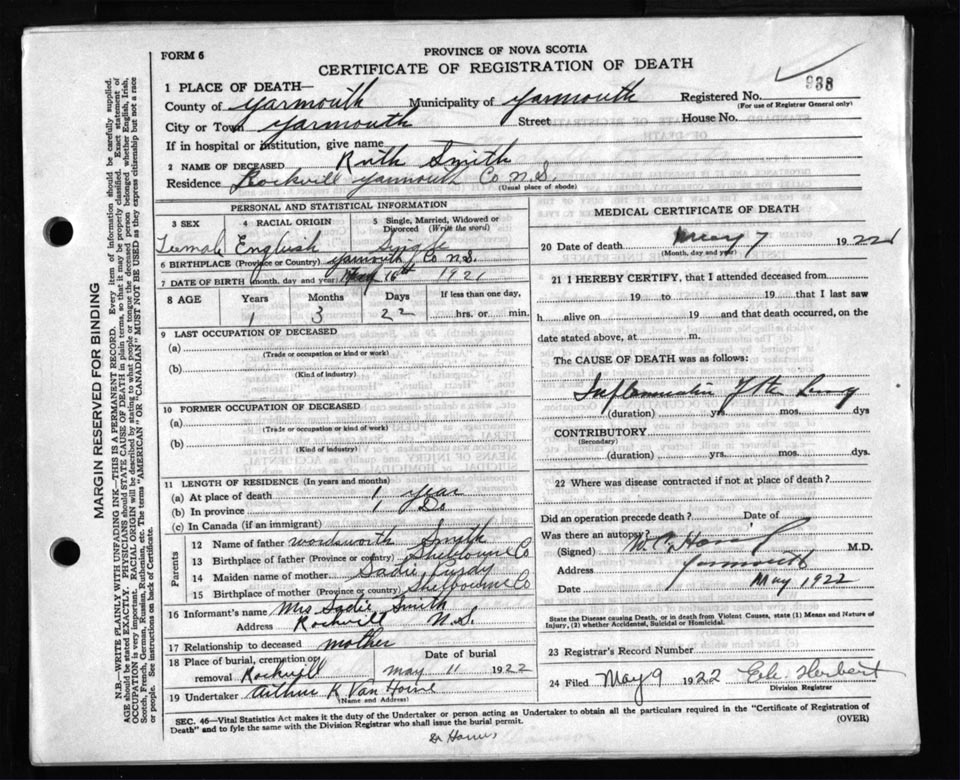 FORM 6
PROVINCE OF NOVA SCOTIA
CERTIFICATE OF REGISTRATION OF DEATH
938
1 PLACE OF DEATH—
Registered No.
(For use of Registrar General only)
County of Yarmouth Municipality of Yarmouth
City or Town Yarmouth Street House No.
If in hospital or institution, give name
2 NAME OF DECEASED Ruth Smith
Residence Rockvill Yarmouth Co N.S.
(Usual place of abode)
PERSONAL AND STATISTICAL INFORMATION
3 SEX 4 RACIAL ORIGIN 5 Single, Married, Widowed or Divorced (Write the word)
Female English Single
6 BIRTHPLACE (Province or Country) Yarmouth Co N.S.
7 DATE OF BIRTH (month, day and year) 16th 1921
8 AGE Years Months Days If less than one day,
1 3 22 hrs. or min.
9 LAST OCCUPATION OF DECEASED
(a)
(Trade or occupation or kind or work)
(b)
(Kind of industry)
10 FORMER OCCUPATION OF DECEASED
(a)
(Trade or occupation or kind of work)
(b)
(Kind of industry)
11 LENGTH OF RESIDENCE (In years and months)
(a) At place of death 1 year
(b) In province 1 Do
(c) In Canada (if an immigrant)
Parents
12 Name of father Wordsworth Smith
13 Birthplace of father (Province or country) Shelburne Co
14 Maiden name of mother Sadie Purdy
15 Birthplace of mother (Province or country) Shelbourne Co
16 Informant's name Mrs Sadie Smith
Address Rockvill N.S.
17 Relationship to deceased mother
18 Place of burial, cremation or removal Rockvill Date of burial May 11 1922
19 Undertaker Arthur K Van Horne
(Name and Address)
MEDICAL CERTIFICATE OF DEATH
20 Date of death May 7 1922
(Month, day and year)
21 I HEREBY CERTIFY, that I attended deceased from
19 to 19 that I last saw
h alive on 19 and that death occurred, on the
date stated above, at m.
The CAUSE OF DEATH was as follows:
Inflammation of the Lung
(duration) yrs. mos. dys
CONTRIBUTORY
(Secondary)
(duration) yrs. mos. dys.
22 Where was disease contracted if not at place of death?
Did an operation precede death? Date of
Was there an autopsy?
(Signed) M.D.
Address Yarmouth
Date May 1922
State the Disease causing Death, or in death from Violent Causes, state (1) Means and Nature of Injury, (2) whether Accidental, Suicidal or Homicidal.
23 Registrar's Record Number
24 Filed May 9 1922 Herbert
Division Registrar
SEC. 46—Vital Statistics Act makes it the duty of the Undertaker or person acting as Undertaker to obtain all the particulars required in the "Certificate of Registration of
Death" and to fyle the same with the Division Registrar who shall issue the burial permit.
(OVER)
MARGIN RESERVED FOR BINDING
N.B.—WRITE PLAINLY WITH UNFADING INK—THIS IS A PERMANENT RECORD. Every item of information should be carefully supplied.
AGE should be stated EXACTLY. PHYSICIANS should STATE CAUSE OF DEATH in plain terms, so that it may be properly classified. Exact statement of
OCCUPATION is very important. RACIAL ORIGIN will be described by stating to what people or tongue the deceased person belonged whether English, Irish,
Scotch, French, German, Russian, Ruthenian, etc. The terms "AMERICAN" OR "CANADIAN" MUST NOT BE USED as they express citizenship but not a race
or people. See instructions on back of Certificate.